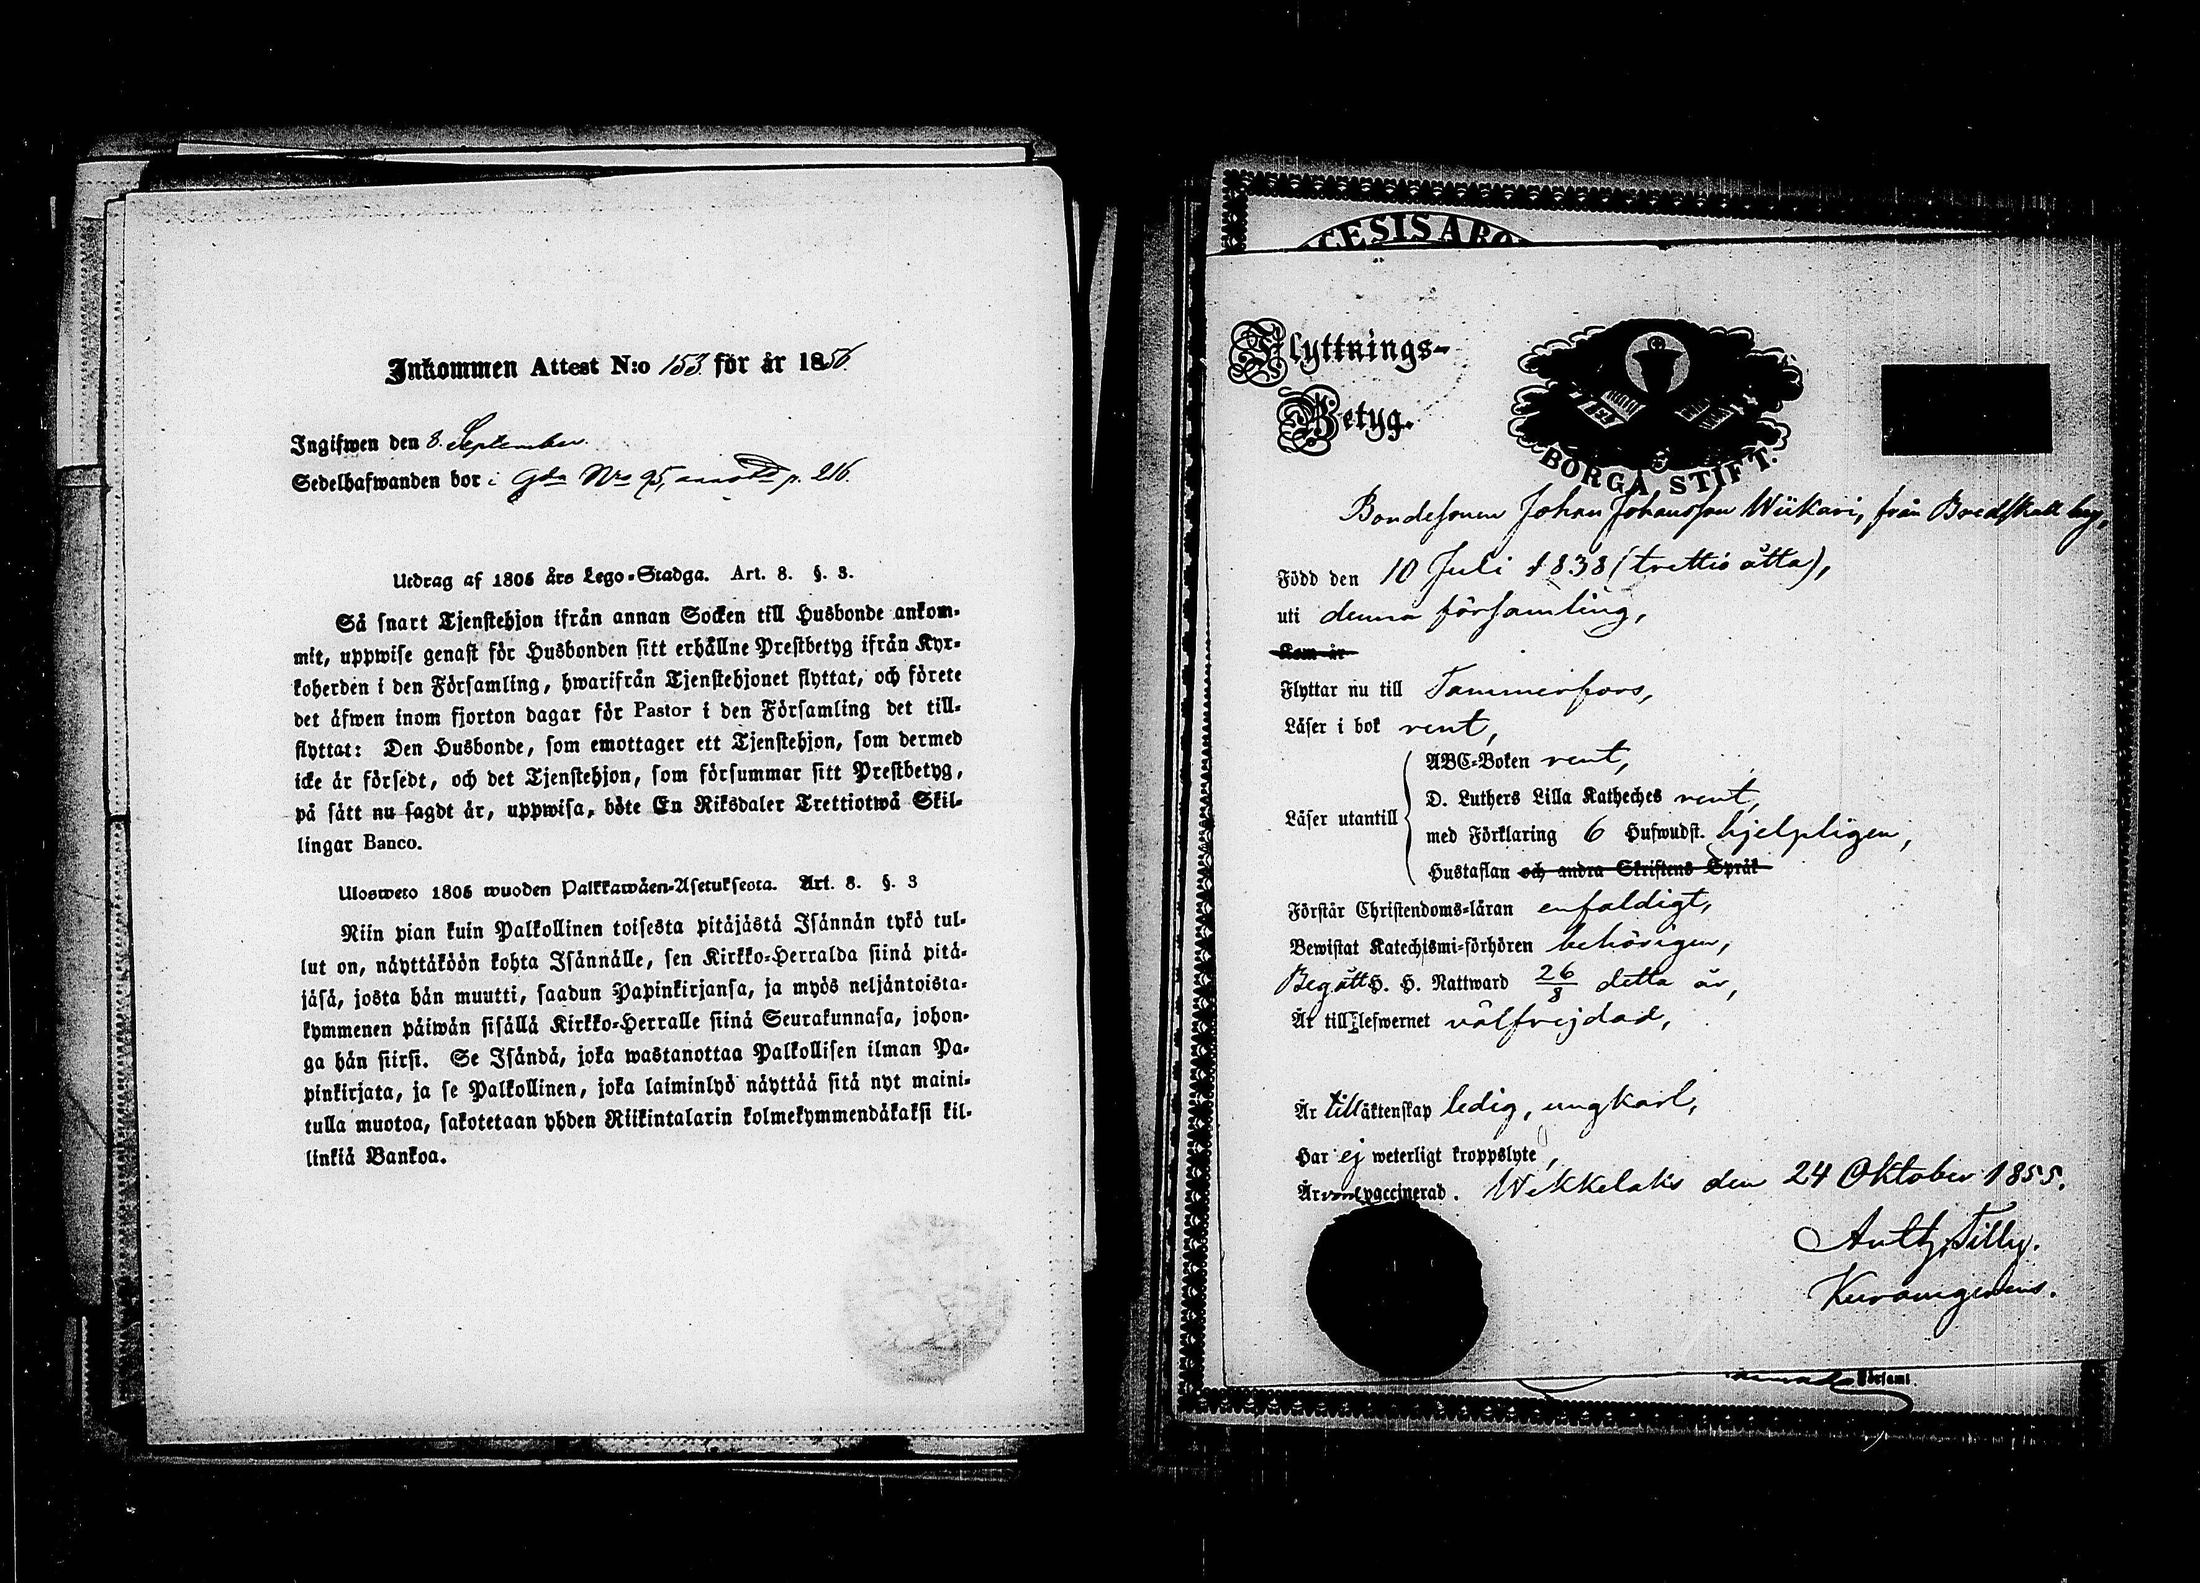 Inkommen Attest N:o 153. för år 1856.
Ingifwen den 8. September.
Sedelhafwanden bor i Gdn Nro 95, p. 216.
Utdrag af 1805 års Lego-Stadga. Art. 8. §. 3.
Så snart Tjenstehjon ifrån annan Socken till Husbonde ankom-
mit, uppwise genast för Husbonden sitt erhållne Prestbetyg ifrån Kyr-
koherden i den Församling, hwarifrån Tjenstehjonet flyttat, och förete
det äfwen inom fjorton dagar för Pastor i den Församling det till-
flyttat: Den Husbonde, som emottager ett Tjenstehjon, som dermed
icke är försedt, och det Tjenstehjon, som försummar sitt Prestbetyg,
på sätt nu sagdt är, uppwisa, böte En Riksdaler Trettiotwå Skil-
lingar Banco.
Ulosweto 1805 wuoden Palkkawäen-Asetuksesta. Art. 8. §. 3
Niin pian kuin Palkollinen toisesta pitäjästä Isännän tykö tul-
lut on, näyttäköön kohta Isännälle, sen Kirkko-Herralda siinä pitä-
jäsä, josta hän muutti, saadun Papinkirjansa, ja myös neljäntoista-
kymmenen päiwän sisällä Kirkko-Herralle siinä Seurakunnasa, johon-
ga hän siirsi. Se Isändä, joka wastanottaa Palkollisen ilman Pa-
pinkirjata, ja se Palkollinen, joka laiminlyö näyttää sitä nyt maini-
tulla muotoa, sakotetaan yhden Riikintalarin kolmekymmendäkaksi kil-
linkiä Bankoa.
CESIS ABO
Flyttnings-
Betyg.
BORGÅ STIFT.
Bondesonen Johan Johansson Wiikari, från Bredskall by,
Född den 10 Juli 1838 (trettio åtta),
uti denna församling,
Kom år
Flyttar nu till Tammerfors,
Läser i bok rent,
Läser utantill
ABC-Boken rent,
D. Luthers Lilla Katheches rent,
med Förklaring 6 Hufwudst. hjelpligen,
Hustaflan och andra Skriftens Språk
Förstår Christendoms-läran enfaldigt,
Bewistat Katechismi-förhören behörigen,
Begått H. H. Nattward 26/8 detta år,
Är till lefwernet välfrejdad,
Är till äktenskap ledig, ungkarl,
Har ej weterligt kroppslyte,
Är vaccinerad. Wekkelaks den 24 Oktober 1855.
Anth. Tilly.
Församl.